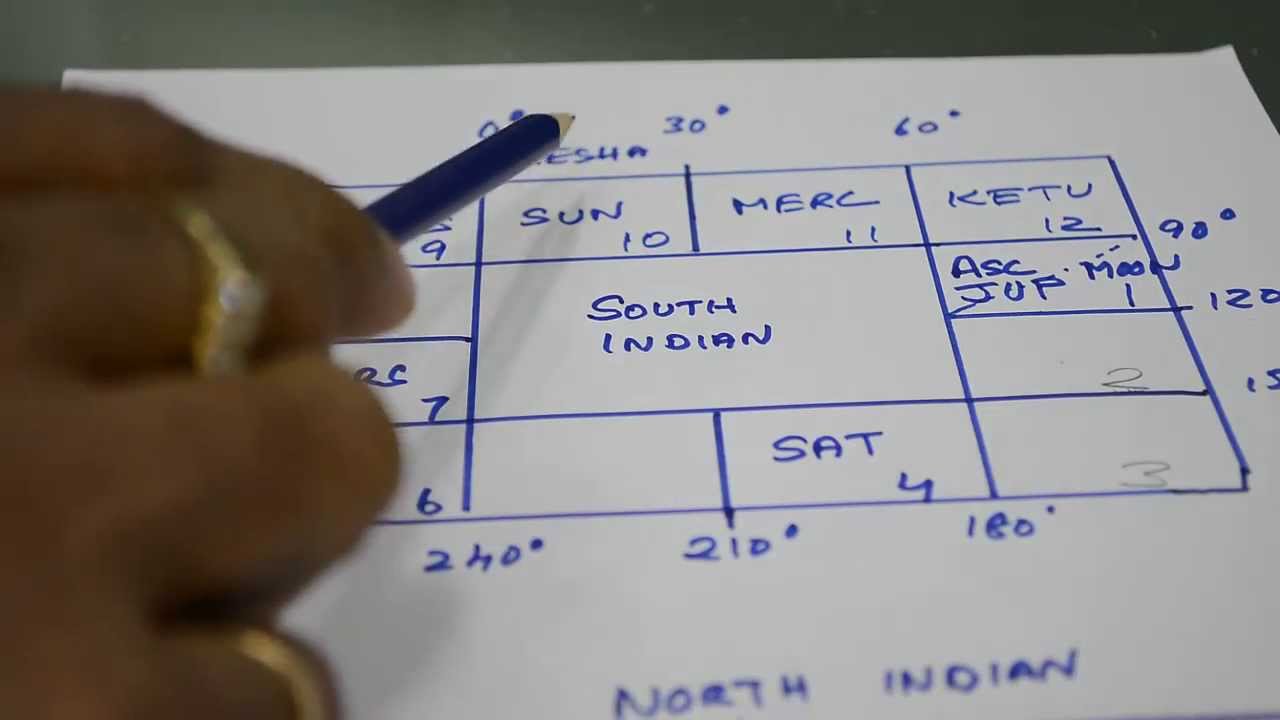 0° 30° 60°
SUN MERC KETU
9 10 11 12 90°
ASC. MOON
JUP 1 120
SOUTH
INDIAN
2
7
SAT
3
6 4
240° 210° 180°
NORTH INDIAN